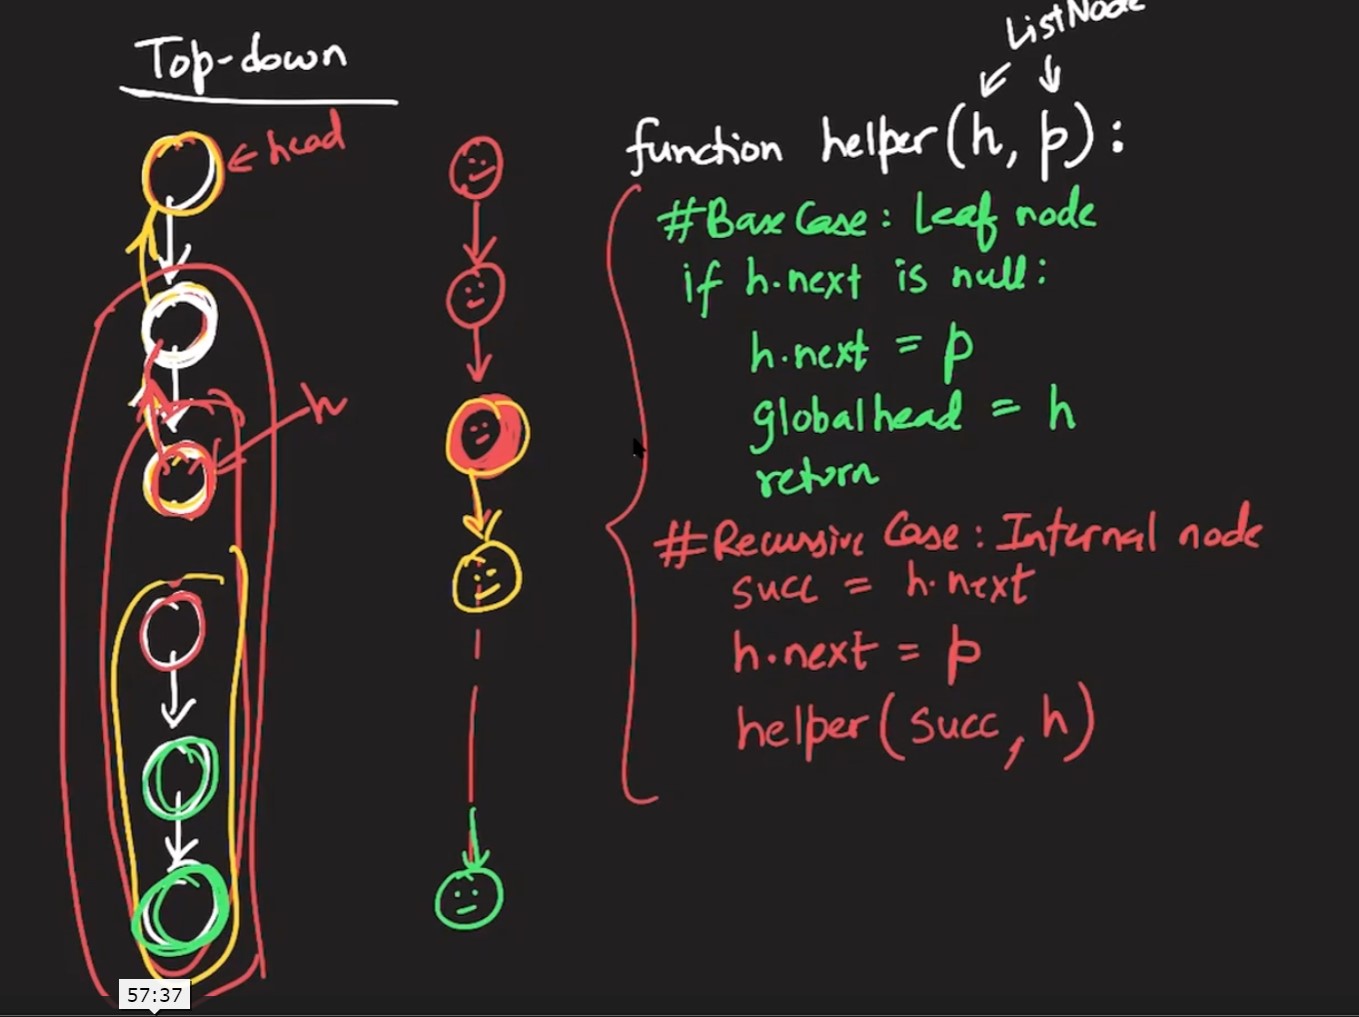 Top-down
head
h
ListNode
function helper(h, p):
#Base Case: Leaf node
if h.next is null:
h.next = p
globalhead = h
return
#Recursive Case: Internal node
succ = h.next
h.next = p
helper(succ, h)
57:37